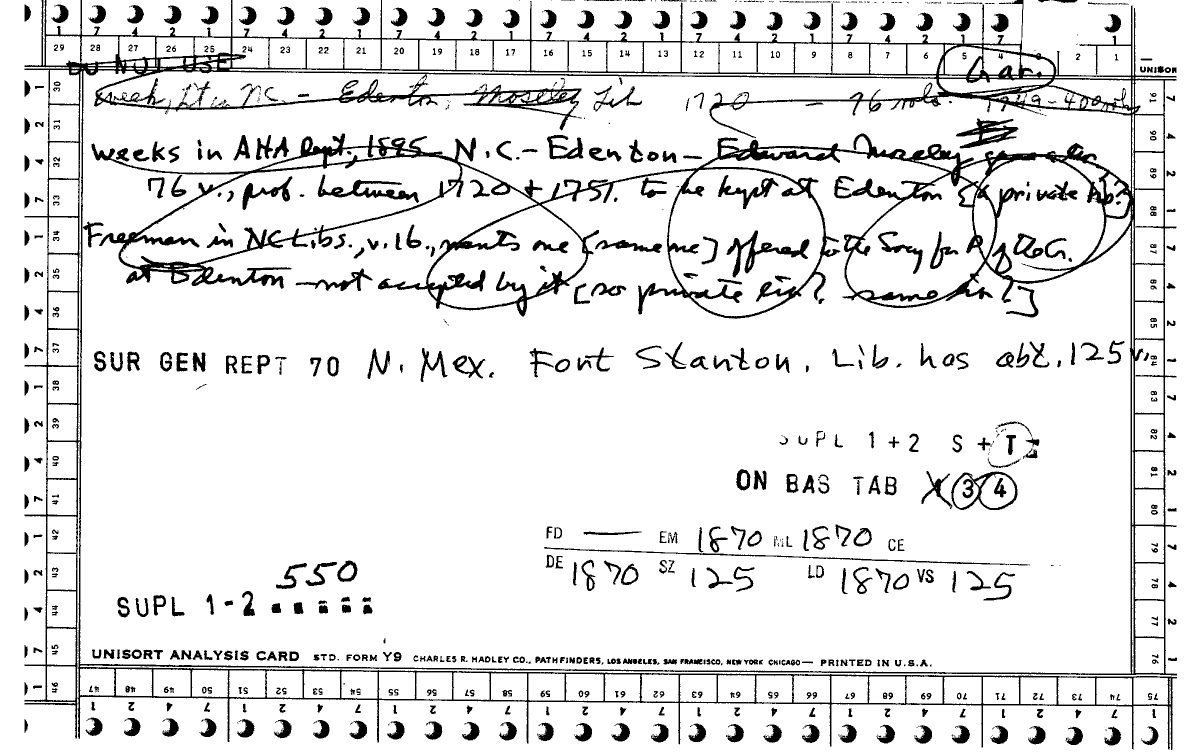 1 7 4 2 1 7 4 2 1 7 4 2 1 7 4 2 1 7 4 2 1 7 4 2 1 7 1
29 28 27 26 25 24 23 22 21 20 19 18 17 16 15 14 13 12 11 10 9 8 7 6 5 4 3 2 1
DO NOT USE
Gar.
UNISOR
N.C. – Edenton, Moseley Lib 1720 – 76 vols. 1749–400 vols
Weeks in AHA Rept, 1895 N.C. – Edenton – Edward Moseley
76 v., prob. between 1720 + 1751. to be kept at Edenton [a private lib?]
Freeman in NC Libs., v. 16., wants one [same one] offered to the Socy for P of the G.
at Edenton – not accepted by it [so private lib? same lib?]
SUR GEN REPT 70 N. Mex. Fort Stanton. Lib. has abt. 125 v.
SUPL 1+2 S+T
ON BAS TAB 3 4
FD — EM 1870 ML 1870 CE
DE 1870 SZ 125 LD 1870 VS 125
550
SUPL 1-2
UNISORT ANALYSIS CARD STD. FORM Y9 CHARLES R. HADLEY CO., PATHFINDERS, LOS ANGELES, SAN FRANCISCO, NEW YORK CHICAGO — PRINTED IN U.S.A.
47 48 49 50 51 52 53 54 55 56 57 58 59 60 61 62 63 64 65 66 67 68 69 70 71 72 73 74 75
1 2 4 7 1 2 4 7 1 2 4 7 1 2 4 7 1 2 4 7 1 2 4 7 1 2 4 7 1